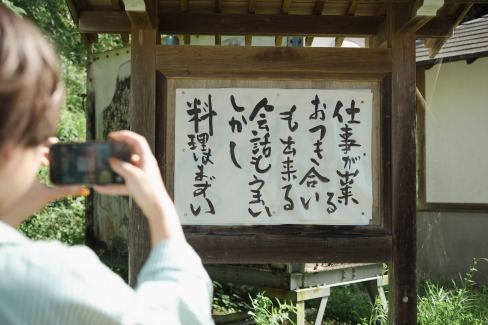 仕事が出来る
おつき合い
も出来る
会話もうまい
しかし
料理はまずい